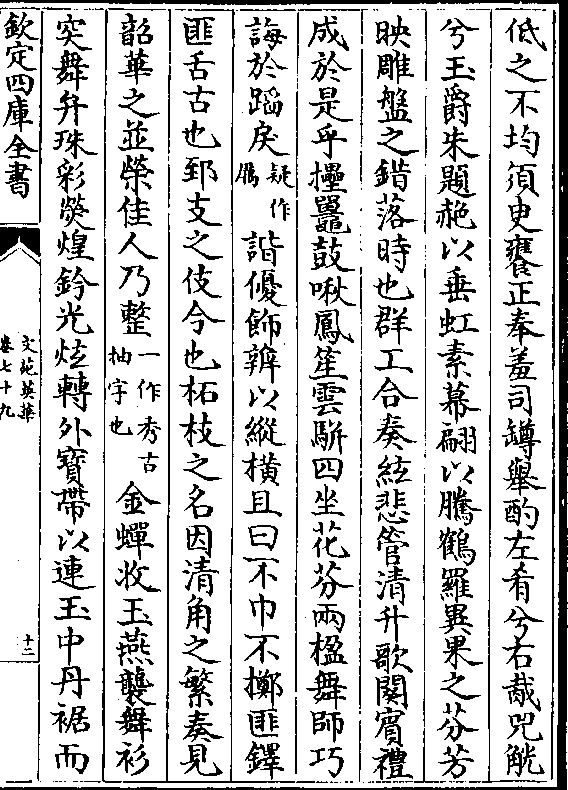 低之不均須臾饔正奉羞司罇舉酌左肴兮右胾兕觥
兮玉爵朱題赩以垂虹素幕翩以騰鶴羅異果之芬芳
映雕盤之錯落時也群工合奏絃悲管清升歌闋賓禮
成於是乎攂鼉鼓啾鳳笙雲駢四坐花芬兩楹舞師巧
誨於蹈戾疑作厲諧優飾辨以縱横且曰不巾不擲匪鐸
匪舌古也郅支之伎今也柘枝之名因清角之繁奏見
韶華之並榮佳人乃整一作秀古抽字也金蟬收玉燕襲舞衫
突舞弁珠彩熒煌鈴光炫轉外寶帶以連玉中丹裾而
欽定四庫全書
文苑英華
卷七十九
十二